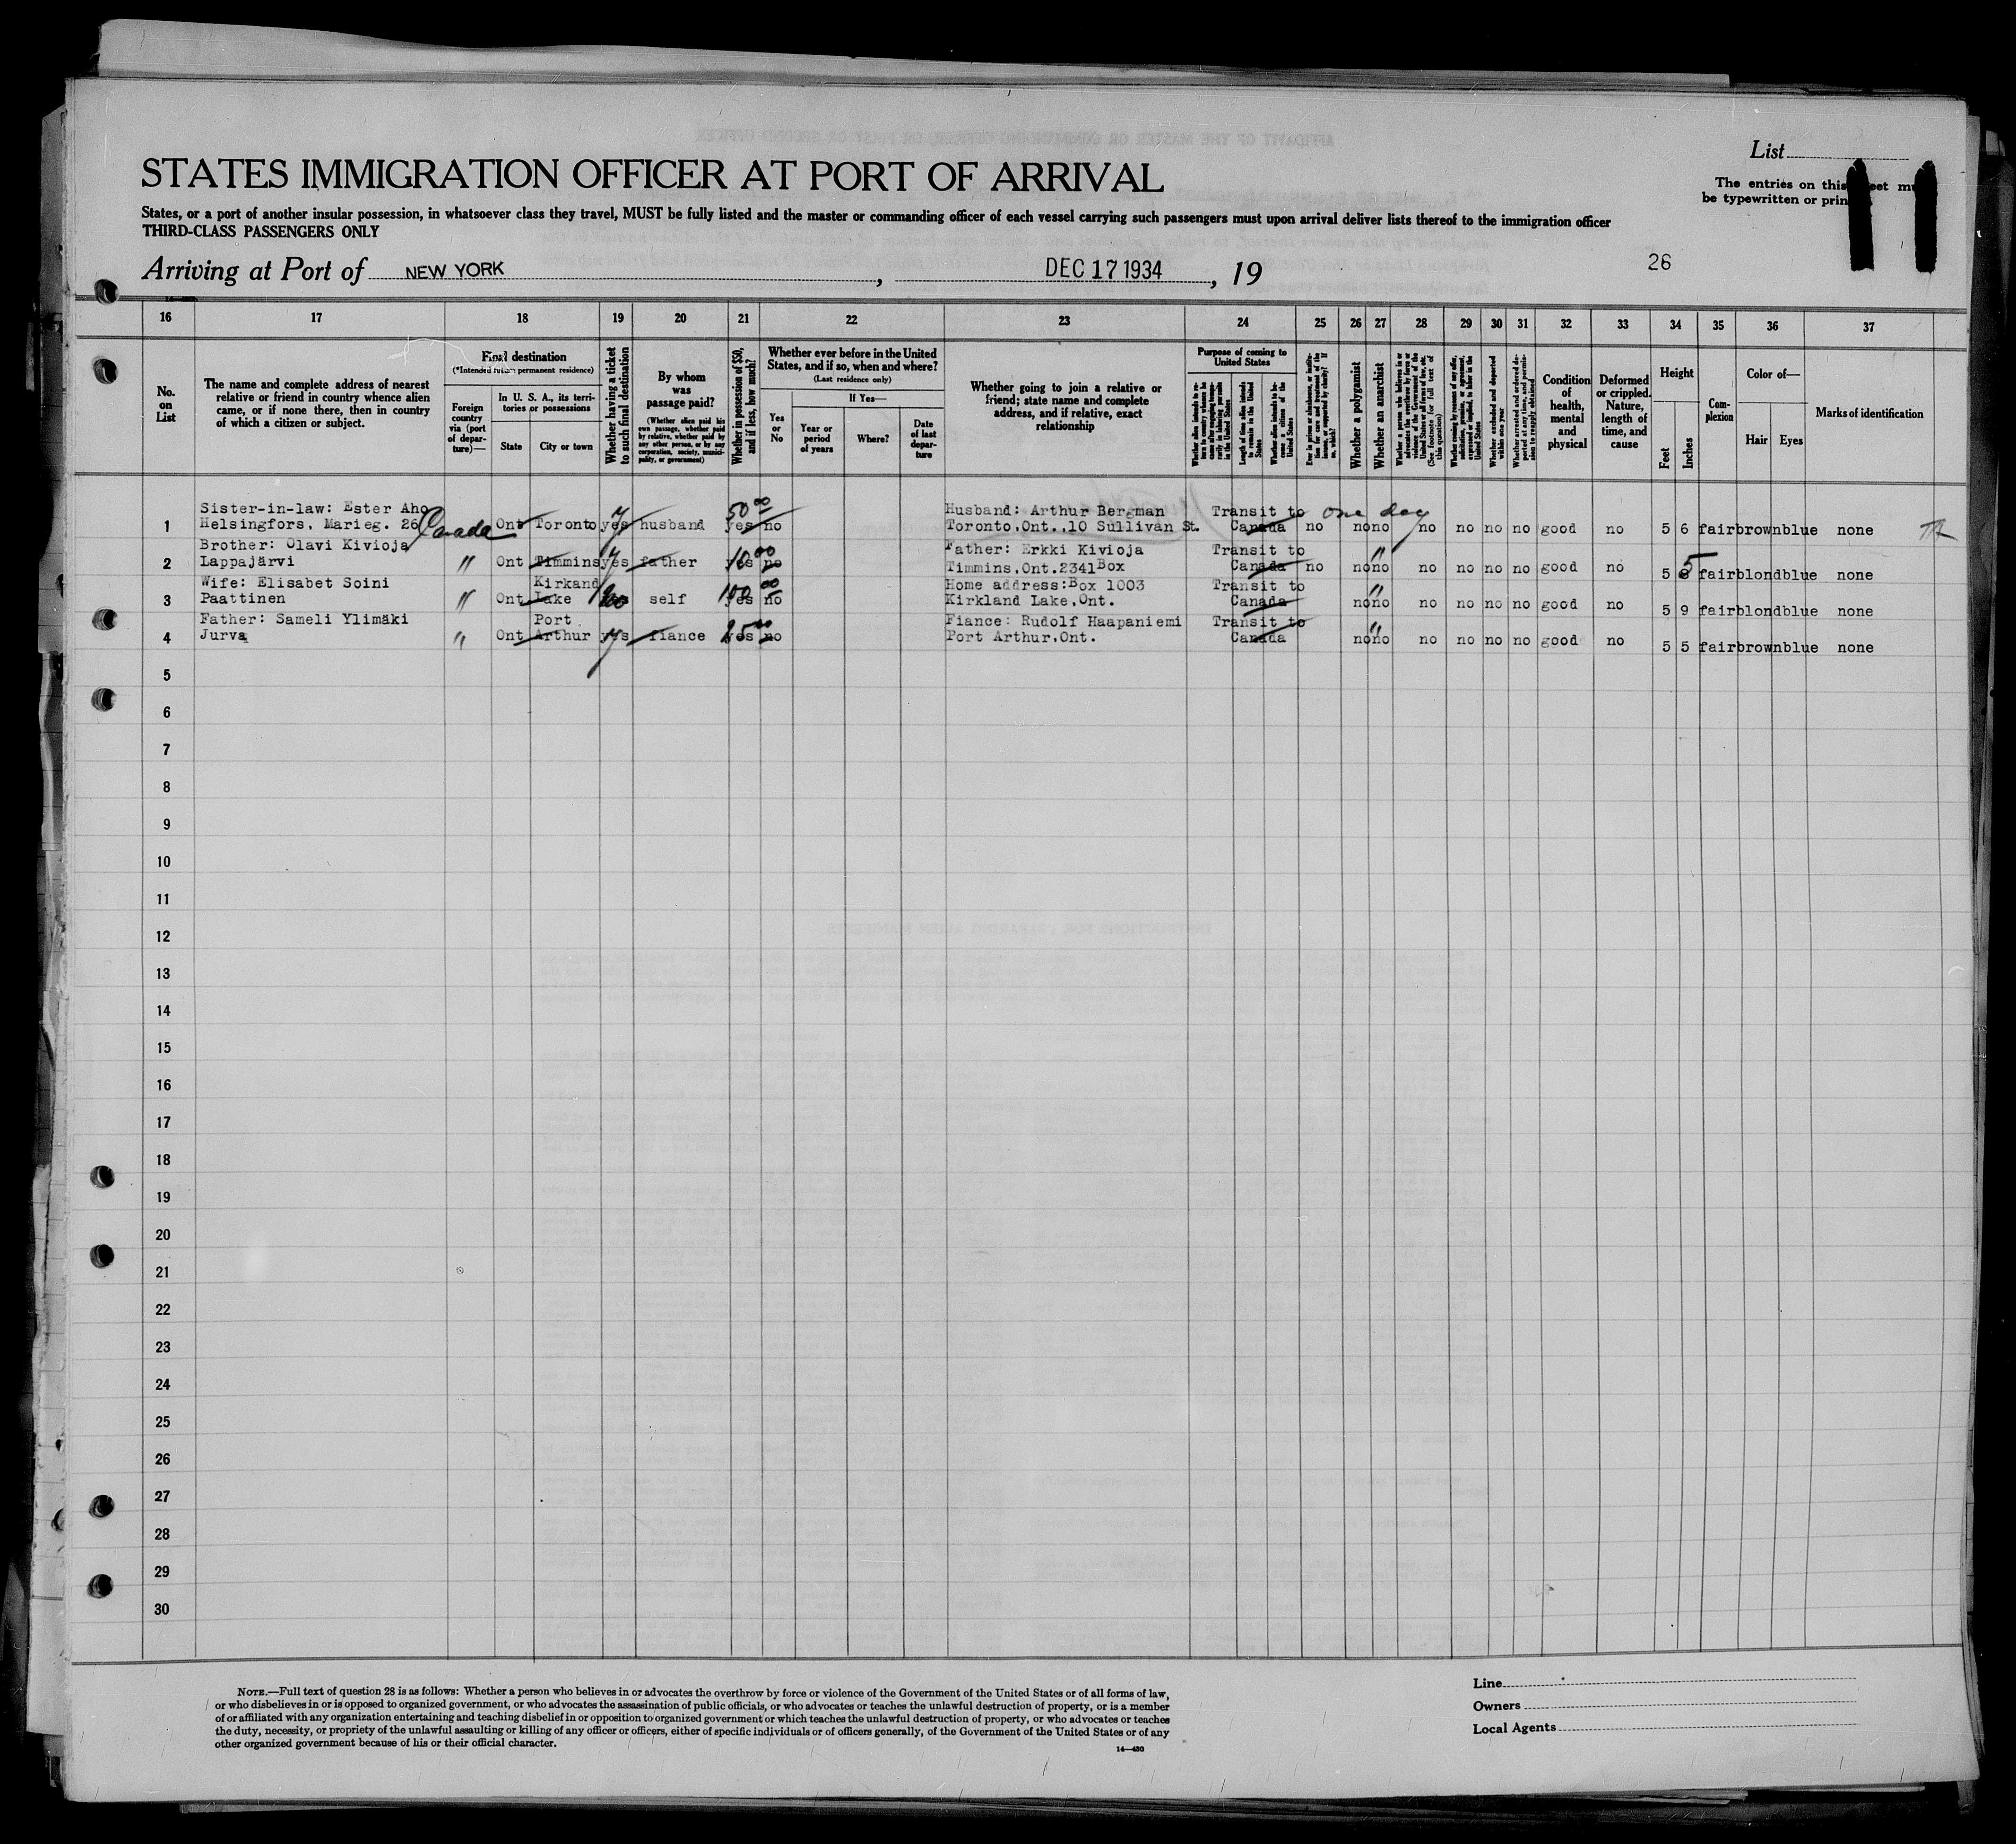 STATES IMMIGRATION OFFICER AT PORT OF ARRIVAL
List
The entries on this sheet must
be typewritten or printed.
11
States, or a port of another insular possession, in whatsoever class they travel, MUST be fully listed and the master or commanding officer of each vessel carrying such passengers must upon arrival deliver lists thereof to the immigration officer
THIRD-CLASS PASSENGERS ONLY
Arriving at Port of NEW YORK, DEC 17 1934, 19
26
16 17 18 19 20 21 22 23 24 25 26 27 28 29 30 31 32 33 34 35 36 37
No. on List
The name and complete address of nearest
relative or friend in country whence alien
came, or if none there, then in country
of which a citizen or subject.
Final destination
(*Intended future permanent residence)
Foreign country via (port of departure)—
In U. S. A., its territories or possessions
State
City or town
Whether having a ticket to such final destination
By whom was passage paid?
(Whether alien paid his own passage, whether paid by relative, whether paid by any other person, or by any corporation, society, municipality, or government)
Whether in possession of $50, and if less, how much?
Whether ever before in the United States, and if so, when and where?
(Last residence only)
Yes or No
If Yes—
Year or period of years
Where?
Date of last departure
Whether going to join a relative or
friend; state name and complete
address, and if relative, exact
relationship
Purpose of coming to United States
Whether alien intends to return to country whence he came after engaging temporarily in laboring pursuits in the United States
Length of time alien intends to remain in the United States
Whether alien intends to become a citizen of the United States
Ever in prison or almshouse, or institution for care and treatment of the insane, or supported by charity? If so, which?
Whether a polygamist
Whether an anarchist
Whether a person who believes in or advocates the overthrow by force or violence of the Government of the United States or all forms of law, etc. (See footnote for full text of this question)
Whether coming by reason of any offer, solicitation, promise, or agreement, expressed or implied, to labor in the United States
Whether excluded and deported within one year
Whether arrested and ordered deported at any time, and permission to reapply obtained
Condition of health, mental and physical
Deformed or crippled. Nature, length of time, and cause
Height
Feet
Inches
Complexion
Color of—
Hair
Eyes
Marks of identification
Sister-in-law: Ester Aho Husband: Arthur Bergman Transit to one day
1 Helsingfors, Marieg. 26 Canada Ont Toronto yes husband 50 00 yes no Toronto, Ont., 10 Sullivan St. Canada no no no no no no no good no 5 6 fair brown blue none
Brother: Olavi Kivioja Father: Erkki Kivioja Transit to "
2 Lappajärvi " Ont Timmins yes father 10 00 yes no Timmins, Ont. 2341 Box Canada no no no no no no no good no 5 5 fair blond blue none
Wife: Elisabet Soini Kirkand Home address: Box 1003 Transit to "
3 Paattinen " Ont Lake self 100 00 yes no Kirkland Lake, Ont. Canada no no no no no no good no 5 9 fair blond blue none
Father: Sameli Ylimäki Port Fiance: Rudolf Haapaniemi Transit to "
4 Jurva " Ont Arthur yes fiance 25 00 yes no Port Arthur, Ont. Canada no no no no no no good no 5 5 fair brown blue none
5
6
7
8
9
10
11
12
13
14
15
16
17
18
19
20
21
22
23
24
25
26
27
28
29
30
NOTE.—Full text of question 28 is as follows: Whether a person who believes in or advocates the overthrow by force or violence of the Government of the United States or of all forms of law,
or who disbelieves in or is opposed to organized government, or who advocates the assassination of public officials, or who advocates or teaches the unlawful destruction of property, or is a member
of or affiliated with any organization entertaining and teaching disbelief in or opposition to organized government or which teaches the unlawful destruction of property, or who advocates or teaches
the duty, necessity, or propriety of the unlawful assaulting or killing of any officer or officers, either of specific individuals or of officers generally, of the Government of the United States or of any
other organized government because of his or their official character.
14—430
Line
Owners
Local Agents